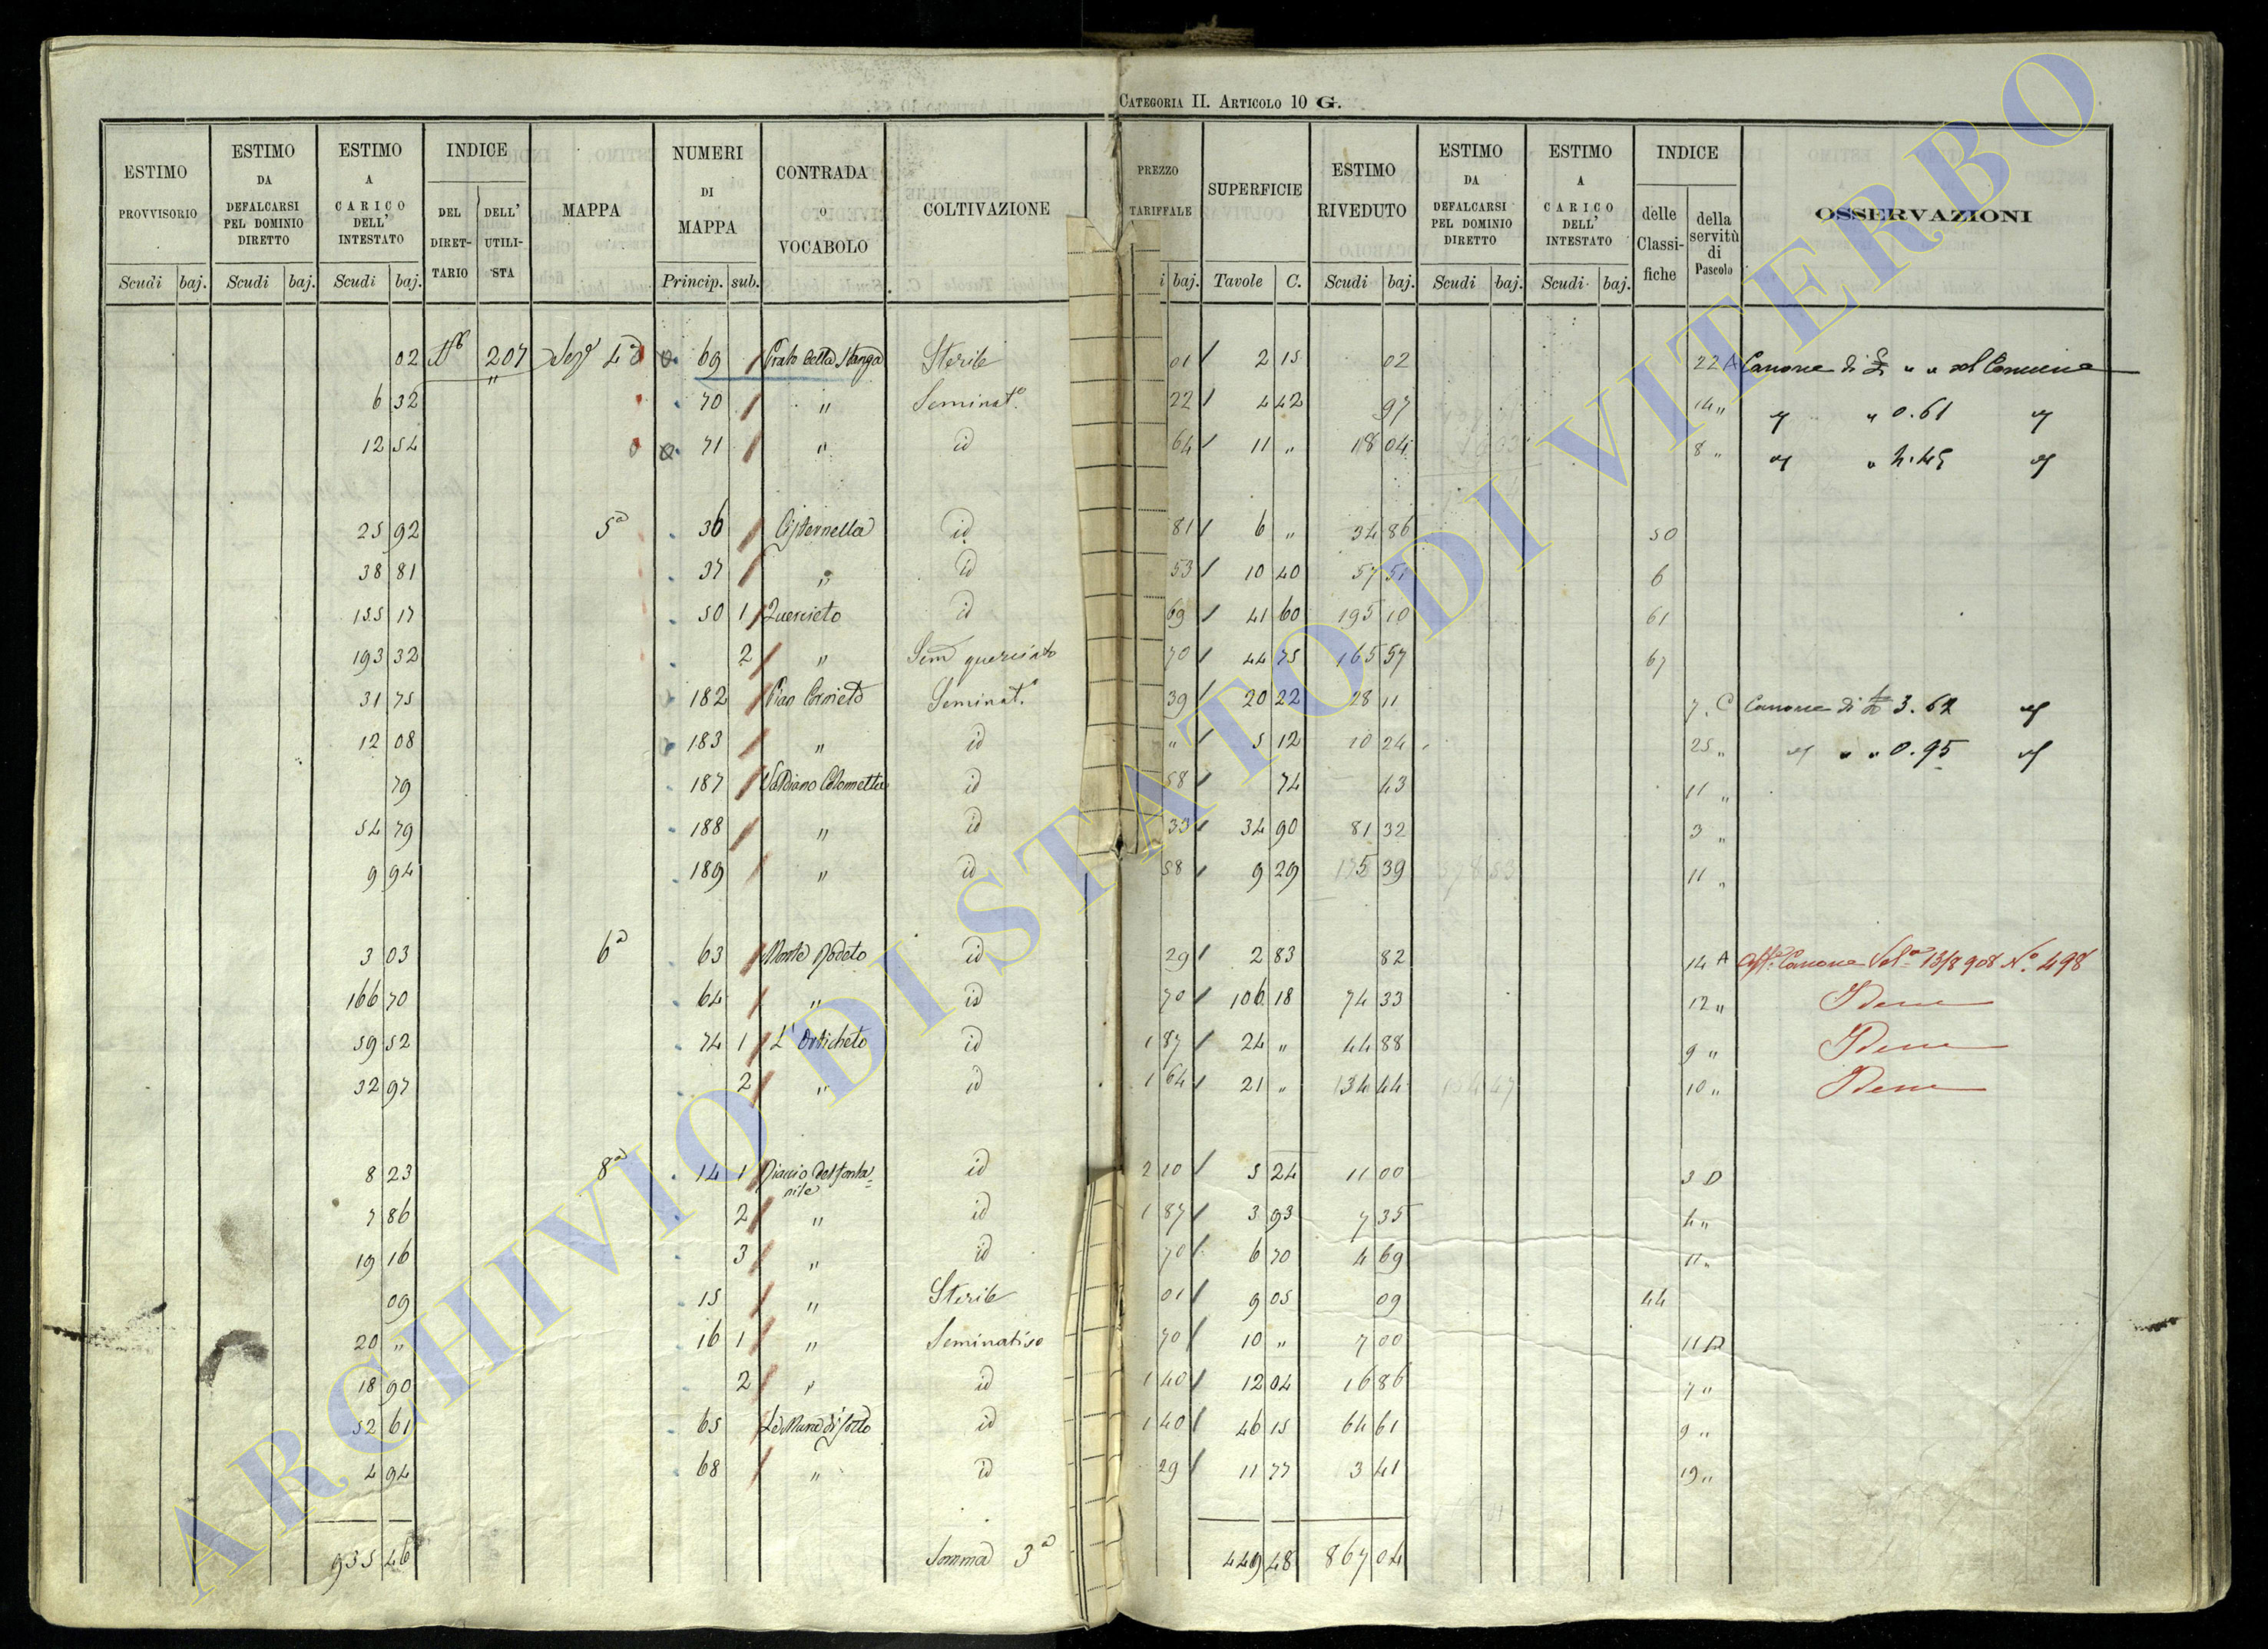 CATEGORIA II. ARTICOLO 10 G.
ESTIMO PROVVISORIO Scudi baj.
ESTIMO DA DEFALCARSI PEL DOMINIO DIRETTO Scudi baj.
ESTIMO A CARICO DELL' INTESTATO Scudi baj.
INDICE DEL DIRET-TARIO DELL' UTILI-STA
MAPPA
NUMERI DI MAPPA Princip. sub.
CONTRADA O VOCABOLO
COLTIVAZIONE
PREZZO TARIFFALE i baj.
SUPERFICIE Tavole C.
ESTIMO RIVEDUTO Scudi baj.
ESTIMO DA DEFALCARSI PEL DOMINIO DIRETTO Scudi baj.
ESTIMO A CARICO DELL' INTESTATO Scudi baj.
INDICE delle Classi-fiche della servitù di Pascolo
OSSERVAZIONI
02 207 4ª 69 Prato della Stanga Sterile 01 2 15 02 22 A Canone di " " al Comune
6 32 70 " Seminat.º 22 4 42 97 14 " " " 0.61 "
12 54 71 " id 64 11 " 18 04 8 " " " 2.45 "
25 92 5ª 36 Cisternella id 81 6 " 34 86 50
38 81 37 " id 53 10 40 57 51 6
155 17 50 1 Querceto id 69 41 60 195 10 61
193 32 2 " Sem querciato 70 44 75 165 57 67
31 75 182 Pian Cornieto Seminat.º 39 20 22 28 11 7 C Canone di 3.62 "
12 08 183 " id " 5 12 10 24 25 " " " " 0.95 "
79 187 Valdiano Colonnetta id 58 74 43 11 "
54 79 188 " id 33 34 90 81 32 3 "
9 94 189 " id 58 9 29 175 39 11 "
3 03 6ª 63 Monte Rodeto id 29 2 83 82 14 A Aff.º Canone Vol.ª 13/8 908 Nº 498
166 70 64 " id 70 106 18 74 33 12 " Idem
59 52 74 1 L' Orticheto id 1 87 24 " 44 88 9 " Idem
32 97 2 " id 1 64 21 " 134 44 10 " Idem
8 23 8ª 14 1 Piaccio del fonta=nile id 2 10 5 24 11 00 3 D
7 86 2 " id 1 87 3 93 7 35 4 "
19 16 3 " id 70 6 70 4 69 11 "
09 15 " Sterile 01 9 05 09 44
20 " 16 1 " Seminativo 70 10 " 7 00 11 D
18 90 2 " id 1 40 12 04 16 86 7 "
52 61 65 Le Mura di sotto id 1 40 46 15 64 61 9 "
4 94 68 " id 29 11 77 3 41 19 "
935 46 Somma 3ª 449 48 867 04
ARCHIVIO DI STATO DI VITERBO